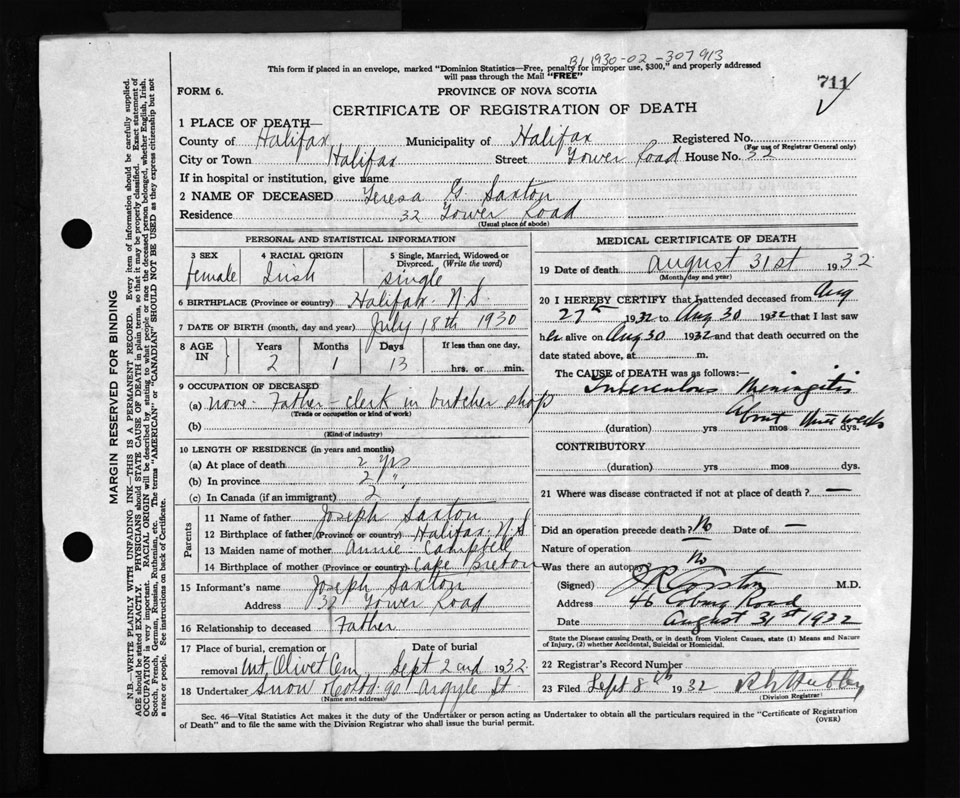 B1 1930-02-307913
This form if placed in an envelope, marked "Dominion Statistics—Free, penalty for improper use, $300," and properly addressed
will pass through the Mail "FREE"
711
FORM 6.
PROVINCE OF NOVA SCOTIA
CERTIFICATE OF REGISTRATION OF DEATH
1 PLACE OF DEATH—
County of Halifax Municipality of Halifax Registered No.
(For use of Registrar General only)
City or Town Halifax Street Tower Road House No. 32
If in hospital or institution, give name
2 NAME OF DECEASED Teresa G. Saxton
Residence 32 Tower Road
(Usual place of abode)
PERSONAL AND STATISTICAL INFORMATION
3 SEX 4 RACIAL ORIGIN 5 Single, Married, Widowed or
Divorced. (Write the word)
female Irish single
6 BIRTHPLACE (Province or country) Halifax N.S.
7 DATE OF BIRTH (month, day and year) July 18th 1930
8 AGE IN Years Months Days If less than one day,
2 1 13 hrs. or min.
9 OCCUPATION OF DECEASED
(a) none. Father - clerk in butcher shop
(Trade or occupation or kind of work)
(b)
(Kind of industry)
10 LENGTH OF RESIDENCE (in years and months)
(a) At place of death 2 yrs
(b) In province 2 "
(c) In Canada (if an immigrant) 2
Parents
11 Name of father Joseph Saxton
12 Birthplace of father (Province or country) Halifax N.S
13 Maiden name of mother Annie Campbell
14 Birthplace of mother (Province or country) Cape Breton
15 Informant's name Joseph Saxton
Address 32 Tower Road
16 Relationship to deceased Father
17 Place of burial, cremation or Date of burial
removal Mt Olivet Cem Sept 2nd 1932
18 Undertaker Snow & Co Ltd. 90 Argyle St
(Name and address)
MEDICAL CERTIFICATE OF DEATH
19 Date of death August 31st 1932
(Month, day and year)
20 I HEREBY CERTIFY that I attended deceased from Aug
27th 1932 to Aug 30 1932 that I last saw
her alive on Aug 30 1932 and that death occurred on the
date stated above, at m.
The CAUSE of DEATH was as follows:—
Tuberculous Meningitis
About three weeks
(duration) yrs mos dys.
CONTRIBUTORY
(duration) yrs mos. dys.
21 Where was disease contracted if not at place of death? —
Did an operation precede death? No Date of —
Nature of operation —
Was there an autopsy? No
(Signed) M.D.
Address 46 Coburg Road
Date August 31st 1932
State the Disease causing Death, or in death from Violent Causes, state (1) Means and Nature
of Injury, (2) whether Accidental, Suicidal or Homicidal.
22 Registrar's Record Number
23 Filed Sept 8th 1932
(Division Registrar)
Sec. 46—Vital Statistics Act makes it the duty of the Undertaker or person acting as Undertaker to obtain all the particulars required in the "Certificate of Registration
of Death" and to file the same with the Division Registrar who shall issue the burial permit. (OVER)
MARGIN RESERVED FOR BINDING
N.B.—WRITE PLAINLY WITH UNFADING INK—THIS IS A PERMANENT RECORD. Every item of information should be carefully supplied.
AGE should be stated EXACTLY. PHYSICIANS should STATE CAUSE OF DEATH in plain terms, so that it may be properly classified. Exact statement of
OCCUPATION is very important. RACIAL ORIGIN will be described by stating to what people or race the deceased person belonged, whether English, Irish,
Scotch, French, German, Russian, Ruthenian, etc. The terms "AMERICAN" or "CANADIAN" SHOULD NOT BE USED as they express citizenship but not
a race or people. See instructions on back of Certificate.